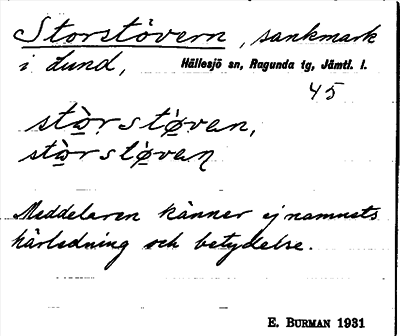 Storstövern, sankmark
i Lund, Hällesjö sn, Ragunda tg, Jämtl. l.
45
stòrstøven,
stòrstøven
Meddelaren känner ej namnets
härledning och betydelse.
E. BURMAN 1931